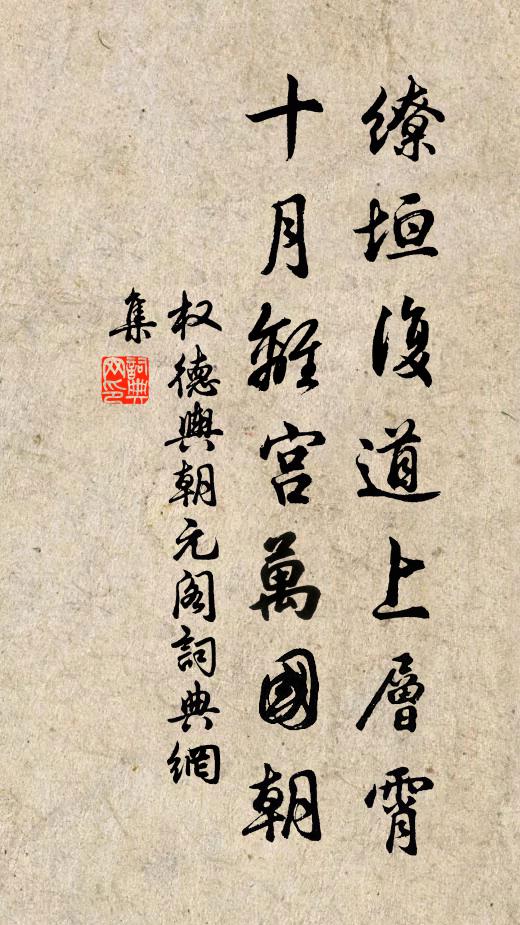 繚垣復道上層霄
十月離宮萬國朝
权德輿朝元阁詞典網
集
詞典
网印